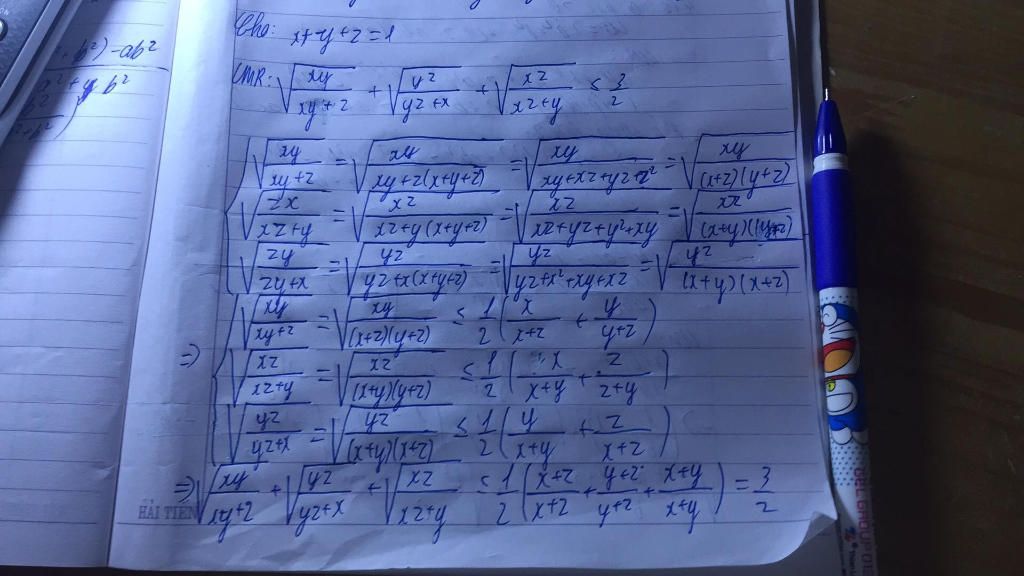 Cho: x+y+z=1
CMR: √(xy/(xy+z)) + √(yz/(yz+x)) + √(xz/(xz+y)) ≤ 3/2
√(xy/(xy+z)) = √(xy/(xy+z(x+y+z))) = √(xy/(xy+xz+yz+z²)) = √(xy/((x+z)(y+z)))
√(zx/(xz+y)) = √(xz/(xz+y(x+y+z))) = √(xz/(xz+yz+y²+xy)) = √(xz/((x+y)(y+z)))
√(zy/(zy+x)) = √(yz/(yz+x(x+y+z))) = √(yz/(yz+x²+xy+xz)) = √(yz/((x+y)(x+z)))
=> √(xy/(xy+z)) = √(xy/((x+z)(y+z))) ≤ 1/2 (x/(x+z) + y/(y+z))
√(xz/(xz+y)) = √(xz/((x+y)(y+z))) ≤ 1/2 (x/(x+y) + z/(z+y))
√(yz/(yz+x)) = √(yz/((x+y)(x+z))) ≤ 1/2 (y/(x+y) + z/(x+z))
=> √(xy/(xy+z)) + √(yz/(yz+x)) + √(xz/(xz+y)) ≤ 1/2 ((x+z)/(x+z) + (y+z)/(y+z) + (x+y)/(x+y)) = 3/2
HẢI TIẾN